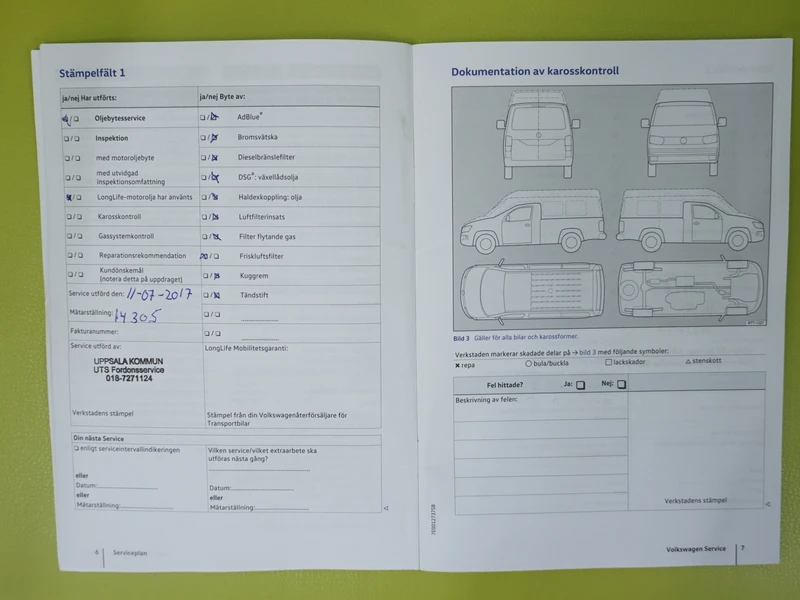 Stämpelfält 1
ja/nej Har utförts:
ja/nej Byte av:
Oljebytesservice
AdBlue®
Inspektion
Bromsvätska
med motoroljebyte
Dieselbränslefilter
med utvidgad
inspektionsomfattning
DSG®: växellådsolja
LongLife-motorolja har använts
Haldexkoppling: olja
Karosskontroll
Luftfilterinsats
Gassystemkontroll
Filter flytande gas
Reparationsrekommendation
Friskluftsfilter
Kundönskemål
(notera detta på uppdraget)
Kuggrem
Service utförd den: 11-07-2017
Tändstift
Mätarställning: 14305
Fakturanummer:
Service utförd av:
UPPSALA KOMMUN
UTS Fordonsservice
018-7271124
Verkstadens stämpel
LongLife Mobilitetsgaranti:
Stämpel från din Volkswagenåterförsäljare för
Transportbilar
Din nästa Service
enligt serviceintervallindikeringen
eller
Datum:
eller
Mätarställning:
Vilken service/vilket extraarbete ska
utföras nästa gång?
Datum:
eller
Mätarställning:
6 Serviceplan
Dokumentation av karosskontroll
Bild 3 Gäller för alla bilar och karossformer.
Verkstaden markerar skadade delar på → bild 3 med följande symboler:
repa
bula/buckla
lackskador
stenskott
Fel hittade? Ja: Nej:
Beskrivning av felen:
Verkstadens stämpel
7E0012737SB
Volkswagen Service 7